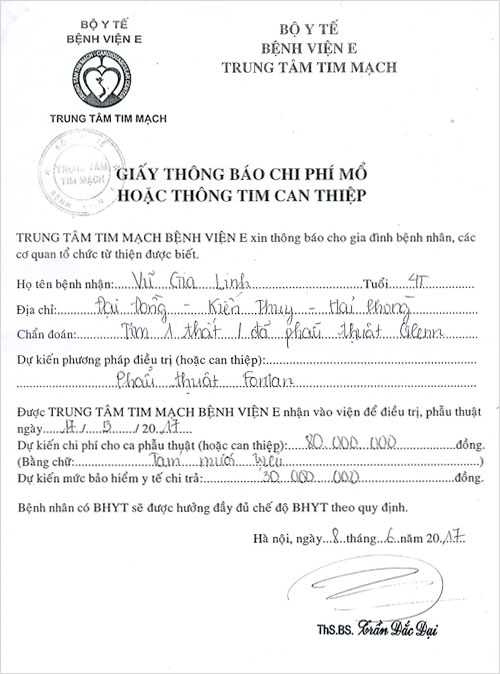 BỘ Y TẾ
BỆNH VIỆN E
TRUNG TÂM TIM MẠCH
BỘ Y TẾ
BỆNH VIỆN E
TRUNG TÂM TIM MẠCH
TRUNG TÂM
TIM MẠCH
GIẤY THÔNG BÁO CHI PHÍ MỔ
HOẶC THÔNG TIM CAN THIỆP
TRUNG TÂM TIM MẠCH BỆNH VIỆN E xin thông báo cho gia đình bệnh nhân, các
cơ quan tổ chức từ thiện được biết.
Họ tên bệnh nhân: Vũ Gia Linh Tuổi 4T
Địa chỉ: Đại Đồng - Kiến Thụy - Hải Phòng
Chẩn đoán: Tim 1 thất / đã phẫu thuật Glenn
Dự kiến phương pháp điều trị (hoặc can thiệp):
Phẫu thuật Fontan
Được TRUNG TÂM TIM MẠCH BỆNH VIỆN E nhận vào viện để điều trị, phẫu thuật
ngày 17 / 5 / 20 17
Dự kiến chi phí cho ca phẫu thuật (hoặc can thiệp): 80.000.000 đồng.
(Bằng chữ: Tám mươi triệu )
Dự kiến mức bảo hiểm y tế chi trả: 30 000 000 đồng.
Bệnh nhân có BHYT sẽ được hưởng đầy đủ chế độ BHYT theo quy định.
Hà nội, ngày 8 tháng 6 năm 20 17
ThS.BS. Trần Đắc Đại